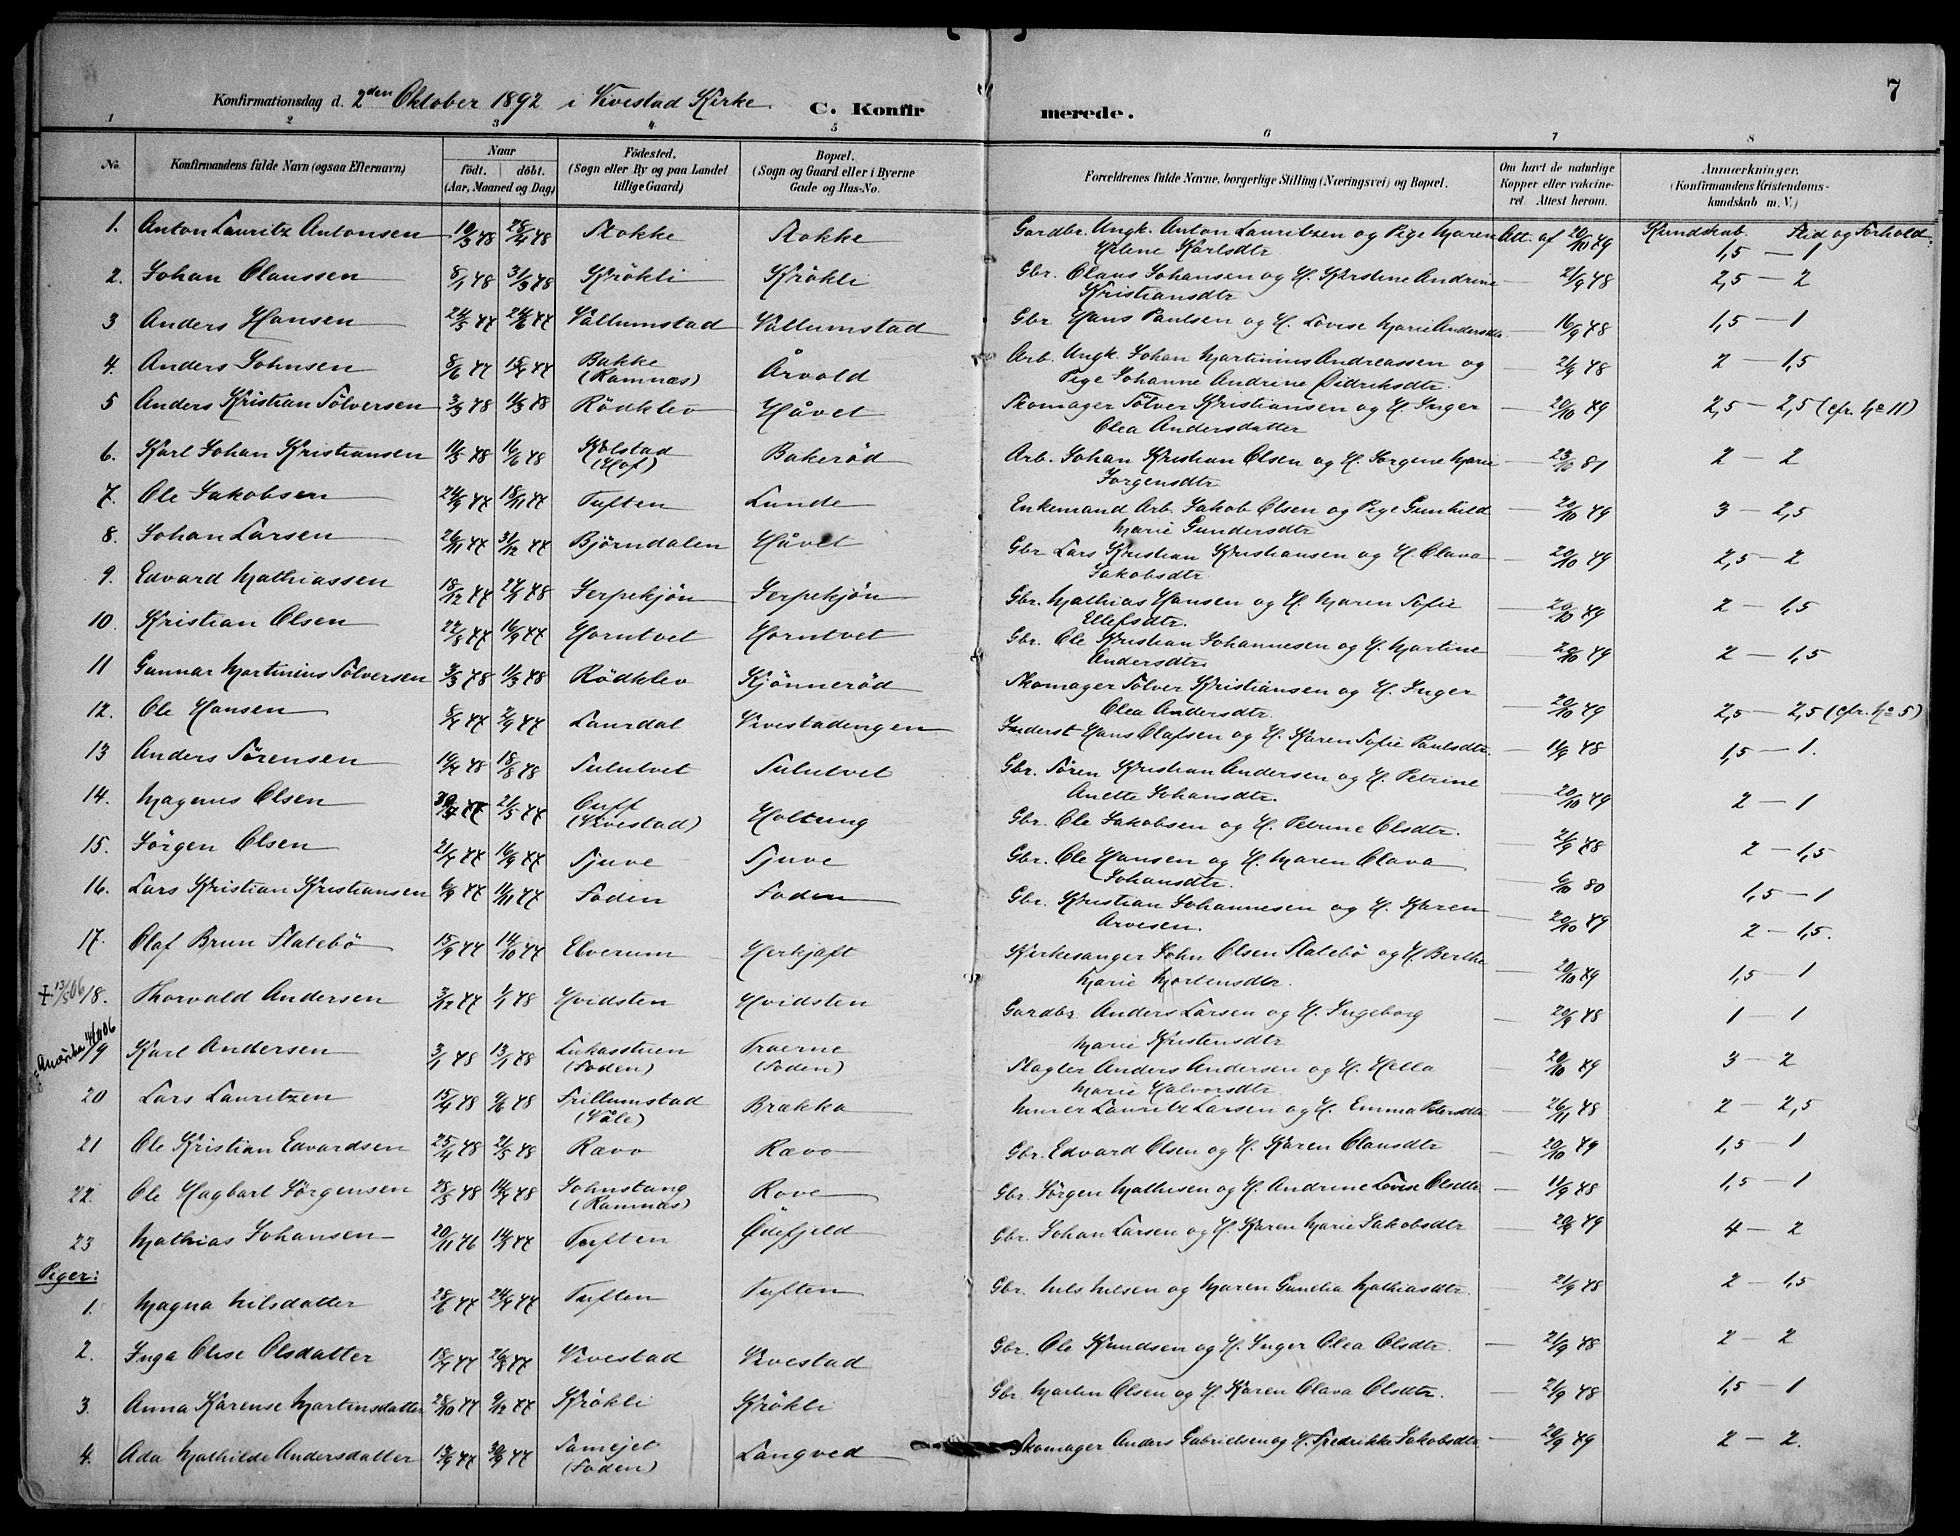 7
Konfirmationsdag d. 2den Oktober 1892 i Vivestad Kirke. C. Konfir merede.
1 2 3 4 5 6 7 8
No. Konfirmandens fulde Navn (ogsaa Efternavn) Naar födt. döbt. (Aar, Maaned og Dag) Födested. (Sogn eller By og paa Landet tillige Gaard) Bopæl. (Sogn og Gaard eller i Byerne Gade og Hus-No. Forældrenes fulde Navne, borgerlige Stilling (Næringsvei) og Bopæl. Om havt de naturlige Kopper eller vakcineret. Attest herom. Anmærkninger. (Konfirmandens Kristendomskundskab m. V.)
Kundskab. Flid og Forhold.
1. Anton Lauritz Antonsen 10/3 78 28/4 78 Stokke Stokke Gardbr. Ungk. Anton Lauritzen og Pige Maren Helene Karlsdtr Att. af 20/10 79 1,5 — 1
2. Johan Claussen 8/1 78 31/3 78 Krökli Krökli Gbr. Claus Johansen og H. Kirstine Andrine Kristiansdtr — 21/9 78 2,5 — 2
3 Anders Hansen 24/5 77 24/6 77 Vallumstad Vallumstad Gbr. Hans Paulsen og H. Lovise Marie Andersdtr — 16/9 78 1,5 — 1
4. Anders Johnsen 8/6 77 Bakke (Ramnæs) Årvold Arb. Ungk. Johan Martinius Andreassen og Pige Johanne Andrine Didriksdtr. — 21/9 78 2 — 1,5
5 Anders Kristian Sölversen 3/3 78 11/3 78 Rödklev Håvet Skomager Sölver Kristiansen og H. Inger Olea Andersdatter — 20/10 79 2,5 — 2,5 (cfr. No 11)
6. Karl Johan Kristiansen 11/5 78 16/6 78 Kolstad (Hof) Bakerød Arb. Johan Kristian Olsen og H. Jorgine Marie Jorgensdtr. — 23/10 81 2 — 2
7. Ole Jakobsen 24/9 77 18/11 77 Tuften Lunde Enkemand Arb. Jakob Olsen og Pige Gunhild Marie Gundersdtr — 20/10 79 3 — 2,5
8. Johan Larsen 26/11 77 31/12 77 Björndalen Håvet Gbr Lars Kristian Kristiansen og H. Olava Jakobsdtr — 20/10 79 2,5 — 2
9. Edvard Mathiassen 18/12 77 27/1 78 Jerpekjön Jerpekjön Gbr. Mathias Hansen og H. Maren Sofie Ellefsdtr. — 20/10 79 2 — 1,5
10. Kristian Olsen 22/8 77 16/9 77 Horntvet Horntvet Gbr. Ole Kristian Johannesen og H. Martine Andersdtr. — 20/10 79 2 — 1,5
11 Gunnar Martinius Sölversen 3/3 78 11/3 78 Rödklev Kjönneröd Skomager Sölver Kristiansen og H. Inger Olea Andersdtr. — 20/10 79 2,5 — 2,5 (cfr. No 5)
12. Ole Hansen 77 77 Laurdal Vivestadengen Inderst Hans Olafsen og H. Karen Sofie Paulsdtr. — 11/9 78 1,5 — 1.
13 Anders Sörensen 78 18/8 78 Sulutvet Sulutvet Gbr. Sören Kristian Andersen og H. Petrine Anette Johansdtr. — 20/10 79 2 — 1
14. Magnus Olsen 77 21/5 77 (Vivestad) Holtung Gbr. Ole Jakobsen og H. Petrine Olsdtr. — 21/9 78 2 — 1,5
15. Jörgen Olsen 77 16/9 77 Sjuve Sjuve Gbr. Ole Hansen og H. Maren Olava Johansdtr. — 6/10 80 1,5 — 1
16. Lars Kristian Kristiansen 6/9 77 11/11 77 Foden Foden Gbr. Kristian Johannesen og H. Karen Arvesen. — 20/10 79 2 — 1,5.
17. Olaf Brun Flatebö 15/9 77 14/10 77 Elverum Herkjaft Kirkesanger John Olsen Flatebö og H. Berthe Marie Mortensdtr. — 20/10 79 1,5 — 1
‡ 13/5 06 18. Thorvald Andersen 3/12 77 1/1 78 Hvidsten Hvidsten Gardbr. Anders Larsen og H. Ingeborg Marie Kristensdtr — 20/9 78 1 — 1
Amerika 06 19 Karl Andersen 3/1 78 13/1 78 Lukasstuen (Foden) Traerne (Foden) Slagter Anders Andersen og H. Hella Marie Halvorsdtr — 20/10 79 3 — 2
20 Lars Lauritzen 15/4 78 9/6 78 Trillumstad (Våle) Brækka Murer Lauritz Larsen og H. Emma Petersdtr — 26/11 78 2 — 2,5
21 Ole Kristian Edvardsen 25/4 78 21/5 78 Rævo Rævo Gbr. Edvard Olsen og H. Karen Olausdtr — 20/10 79 1,5 — 1
22. Ole Hagbart Jörgensen 28/5 78 78 Johnstang (Ramnæs) Rove Gbr. Jörgen Mathisen og H. Andrine Lovise Olsdtr — 11/9 78 1,5 — 1
23 Mathias Johansen 20/11 76 77 Tuften Ödefjeld Gbr. Johan Larsen og H. Karen Marie Jakobsdtr — 79 4 — 2
Piger:
1. Magna Nilsdatter 28/6 77 77 Tuften Tuften Gbr. Nils Nilsen og Maren Gunelia Mathiasdtr. — 21/9 78 2 — 1,5
2. Inga Olise Olsdatter 77 26/8 77 Vivestad Vivestad Gbr. Ole Knudsen og H. Inger Olea Olsdtr. — 21/9 78 2 — 2
3. Anna Karense Martinsdatter 28/10 77 9/12 77 Krökli Krökli Gbr Martin Olsen og H. Karen Olava Olsdtr. — 21/9 78 1,5 — 1
4. Ada Mathilde Andersdatter 13/9 77 30/9 77 Samejet (Foden) Langved Skomager Anders Gabrielsen og H. Fredrikke Jakobsdtr — 20/9 79 2 — 2.